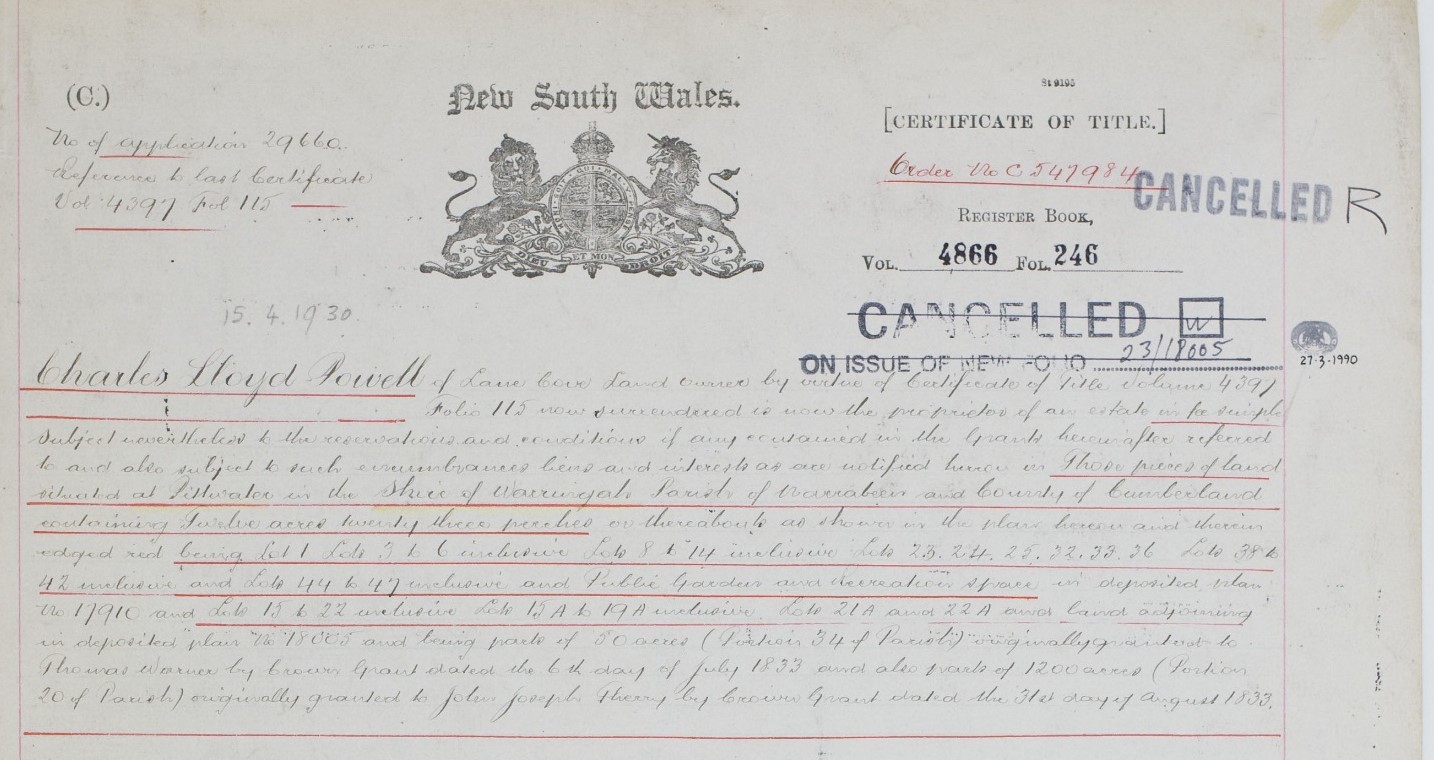 (C.)
No of application 29660.
Reference to last Certificate
Vol 4397 Fol 115
New South Wales.
DIEU ET MON DROIT
15.4.1930.
St 9195
[CERTIFICATE OF TITLE.]
Order No C 547984
CANCELLED R
REGISTER BOOK,
VOL. 4866 FOL. 246
CANCELLED W
ON ISSUE OF NEW FOLIO 23/18005
27-3-1990
Charles Lloyd Powell of Lane Cove Land owner by virtue of Certificate of Title Volume 4397
Folio 115 now surrendered is now the proprietor of an estate in fee simple
subject nevertheless to the reservations and conditions if any contained in the Grants hereinafter referred
to and also subject to such encumbrances liens and interests as are notified hereon in Those pieces of land
situated at Pittwater in the Shire of Warringah Parish of Narrabeen and County of Cumberland
containing Twelve acres twenty three perches or thereabouts as shown in the plan hereon and therein
edged red being Lot 1 Lots 3 to 6 inclusive Lots 8 to 14 inclusive Lots 23. 24. 25. 32. 33. 36 Lots 38 to
42 inclusive and Lots 44 to 47 inclusive and Public Garden and Recreation space in deposited plan
No 17910 and Lots 15 to 22 inclusive Lots 15A to 19A inclusive. Lots 21A and 22A and land adjoining
in deposited plan No 18005 and being parts of 50 acres (Portion 34 of Parish) originally granted to
Thomas Warner by Crown Grant dated the 6th day of July 1833 and also parts of 1200 acres (Portion
20 of Parish) originally granted to John Joseph Therry by Crown Grant dated the 31st day of August 1833.